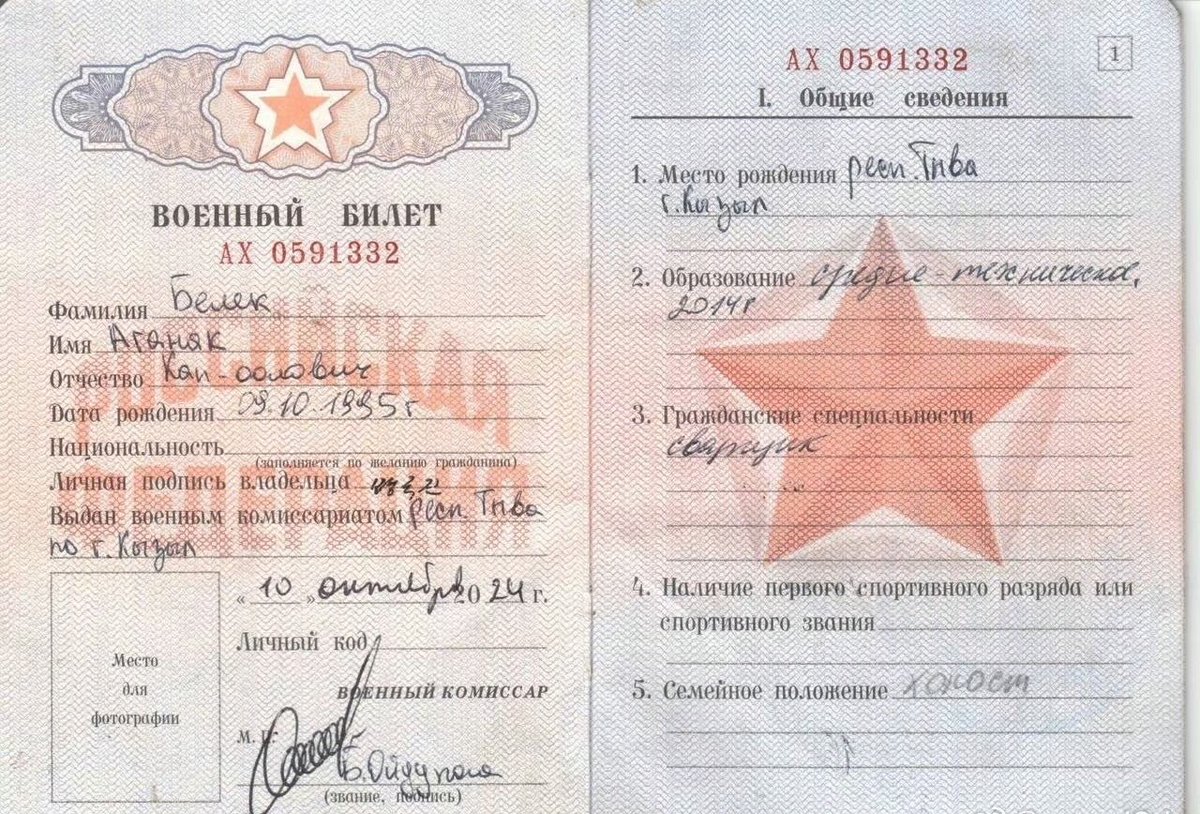 ВОЕННЫЙ БИЛЕТ
АХ 0591332
РОССИЙСКАЯ
ФЕДЕРАЦИЯ
Фамилия Белек
Имя Аганак
Отчество Кап-оолович
Дата рождения 09.10.1995 г
Национальность
(заполняется по желанию гражданина)
Личная подпись владельца
Выдан военным комиссариатом респ. Тыва
по г. Кызыл
« 10 » октября 20 24 г.
Личный код
Место
для
фотографии
ВОЕННЫЙ КОМИССАР
М. П.
(звание, подпись)
АХ 0591332
1
I. Общие сведения
1. Место рождения респ. Тыва
г. Кызыл
2. Образование средне-техническое,
2014г
3. Гражданские специальности
сварщик
4. Наличие первого спортивного разряда или
спортивного звания
5. Семейное положение холост